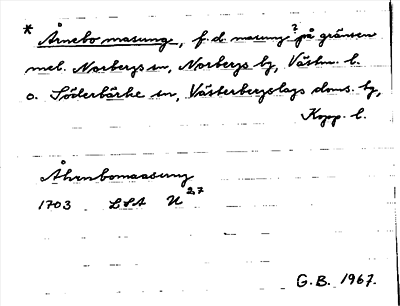 * Årnebo masung, f.d. masung? på gränsen
mel. Norbergs sn, Norbergs bg, Västm. l.
o. Söderbärke sn, Västerbergslags doms. bg,
Kopp. l.
Åhrnbomassung
1703 LSA U 27
G.B. 1967.